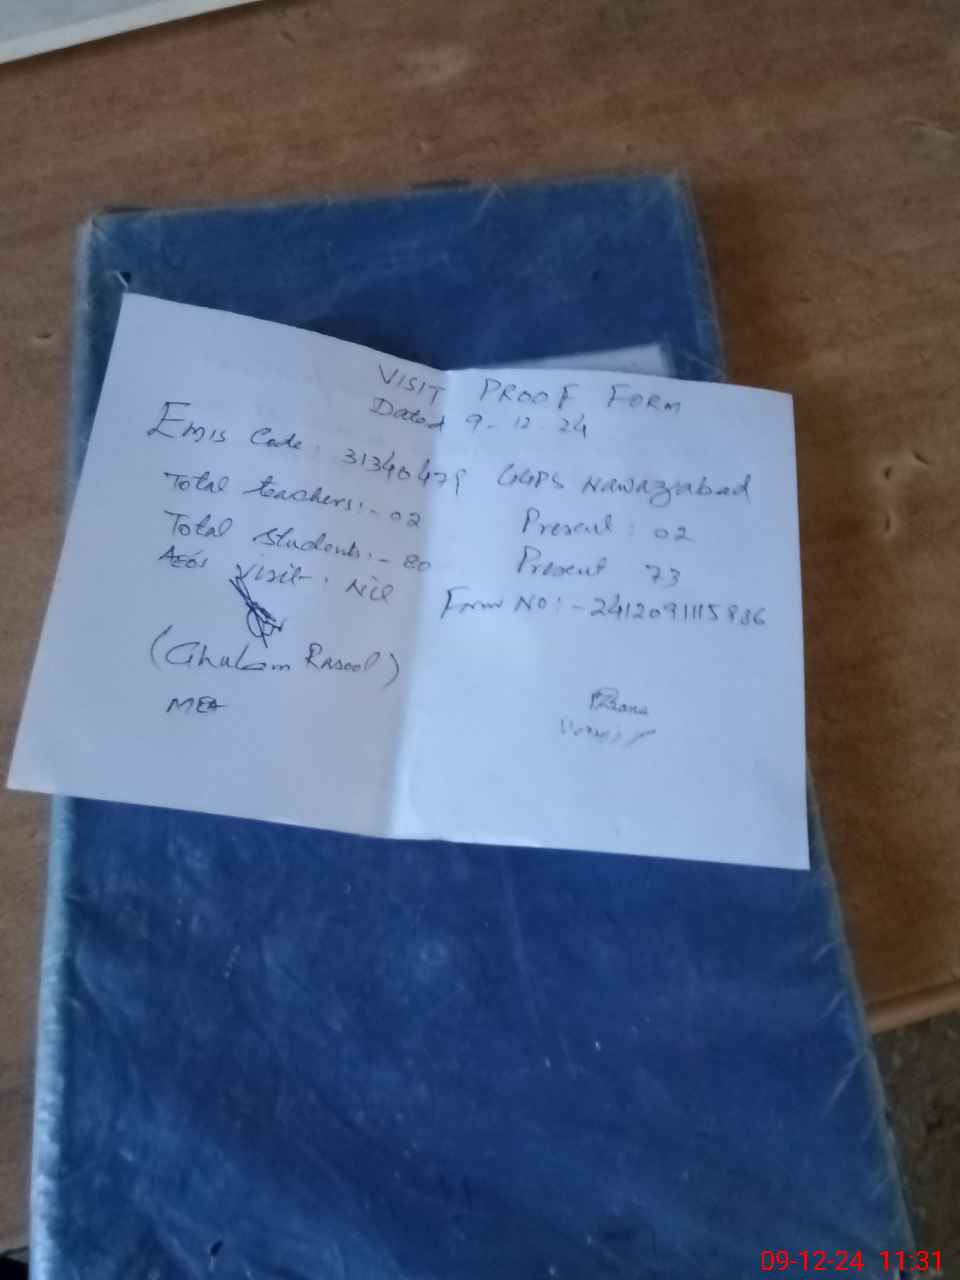 VISIT PROOF FORM
Dated 9-12-24
Emis Code: 31340479 GGPS Nawazabad
Total teachers:- 02 Present: 02
Total Students:- 80 Present 73
AEOs visit: Nil Form NO:- 2412091115836
(Ghulam Rasool)
MEA
09-12-24 11:31